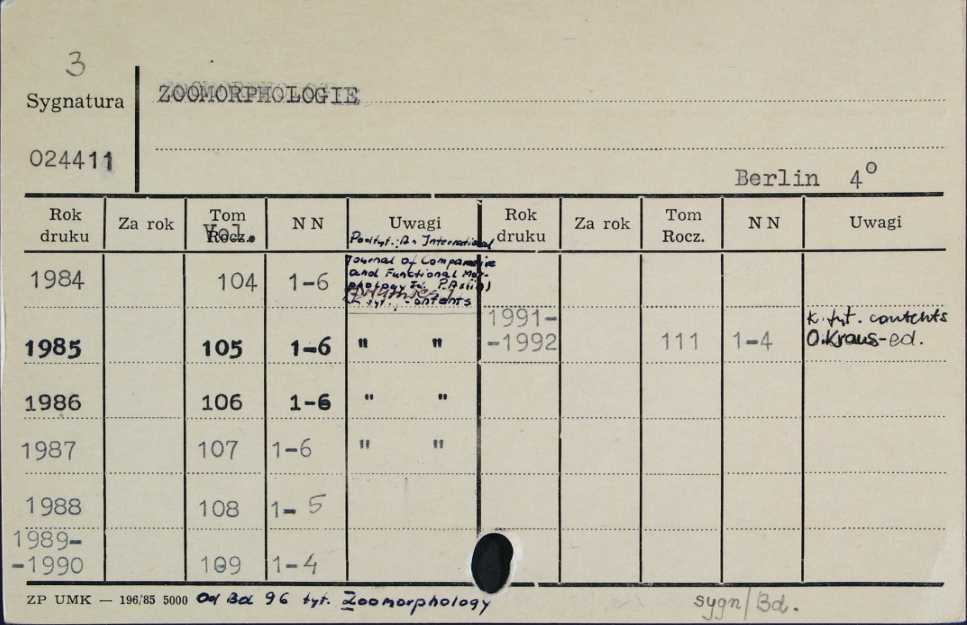 3
Sygnatura
ZOOMORPHOLOGIE
024411
Berlin 4°
Rok druku Za rok Tom Rocz. Vol. N N Uwagi Rok druku Za rok Tom Rocz. N N Uwagi
Podtyt.: An International
Journal of Comparative
and Functional Mor-
1984 104 1-6
k. tyt. contents
1991-
-1992 111 1-4 O.Kraus-ed.
1985 105 1-6 " "
1986 106 1-6 " "
1987 107 1-6 " "
1988 108 1-5
1989-
-1990 109 1-4
ZP UMK — 196/85 5000 Od Bd 96 tyt. Zoomorphology
sygn/Bd.